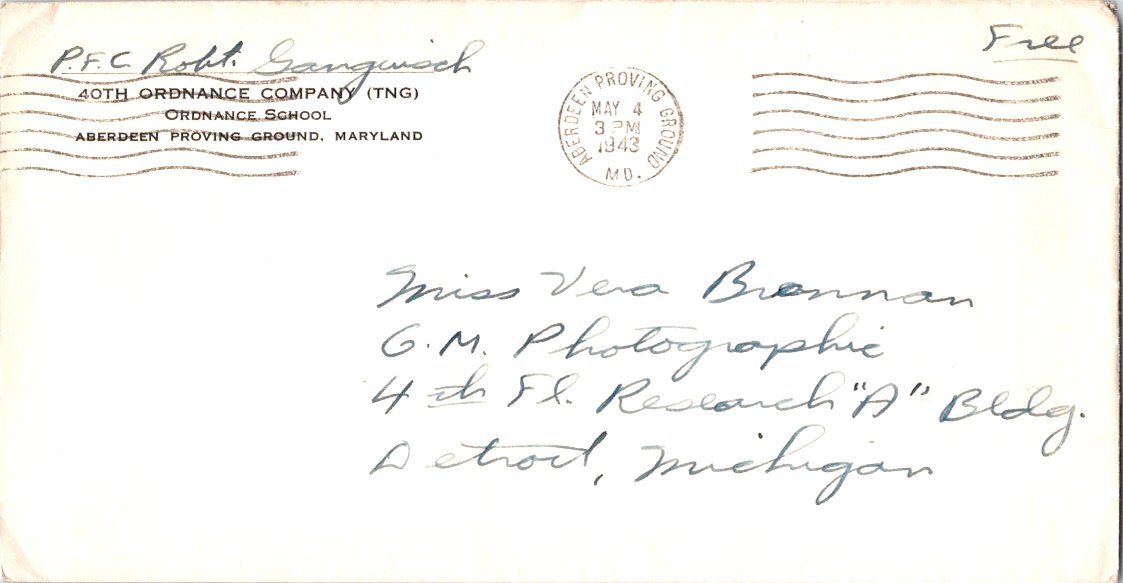 Free
P.F.C. Robt. Gangwisch
40TH ORDNANCE COMPANY (TNG)
ORDNANCE SCHOOL
ABERDEEN PROVING GROUND, MARYLAND
ABERDEEN PROVING GROUND
MAY 4
3 PM
1943
MD.
Miss Vera Brennan
G.M. Photographic
4th Fl. Research "A" Bldg.
Detroit, Michigan